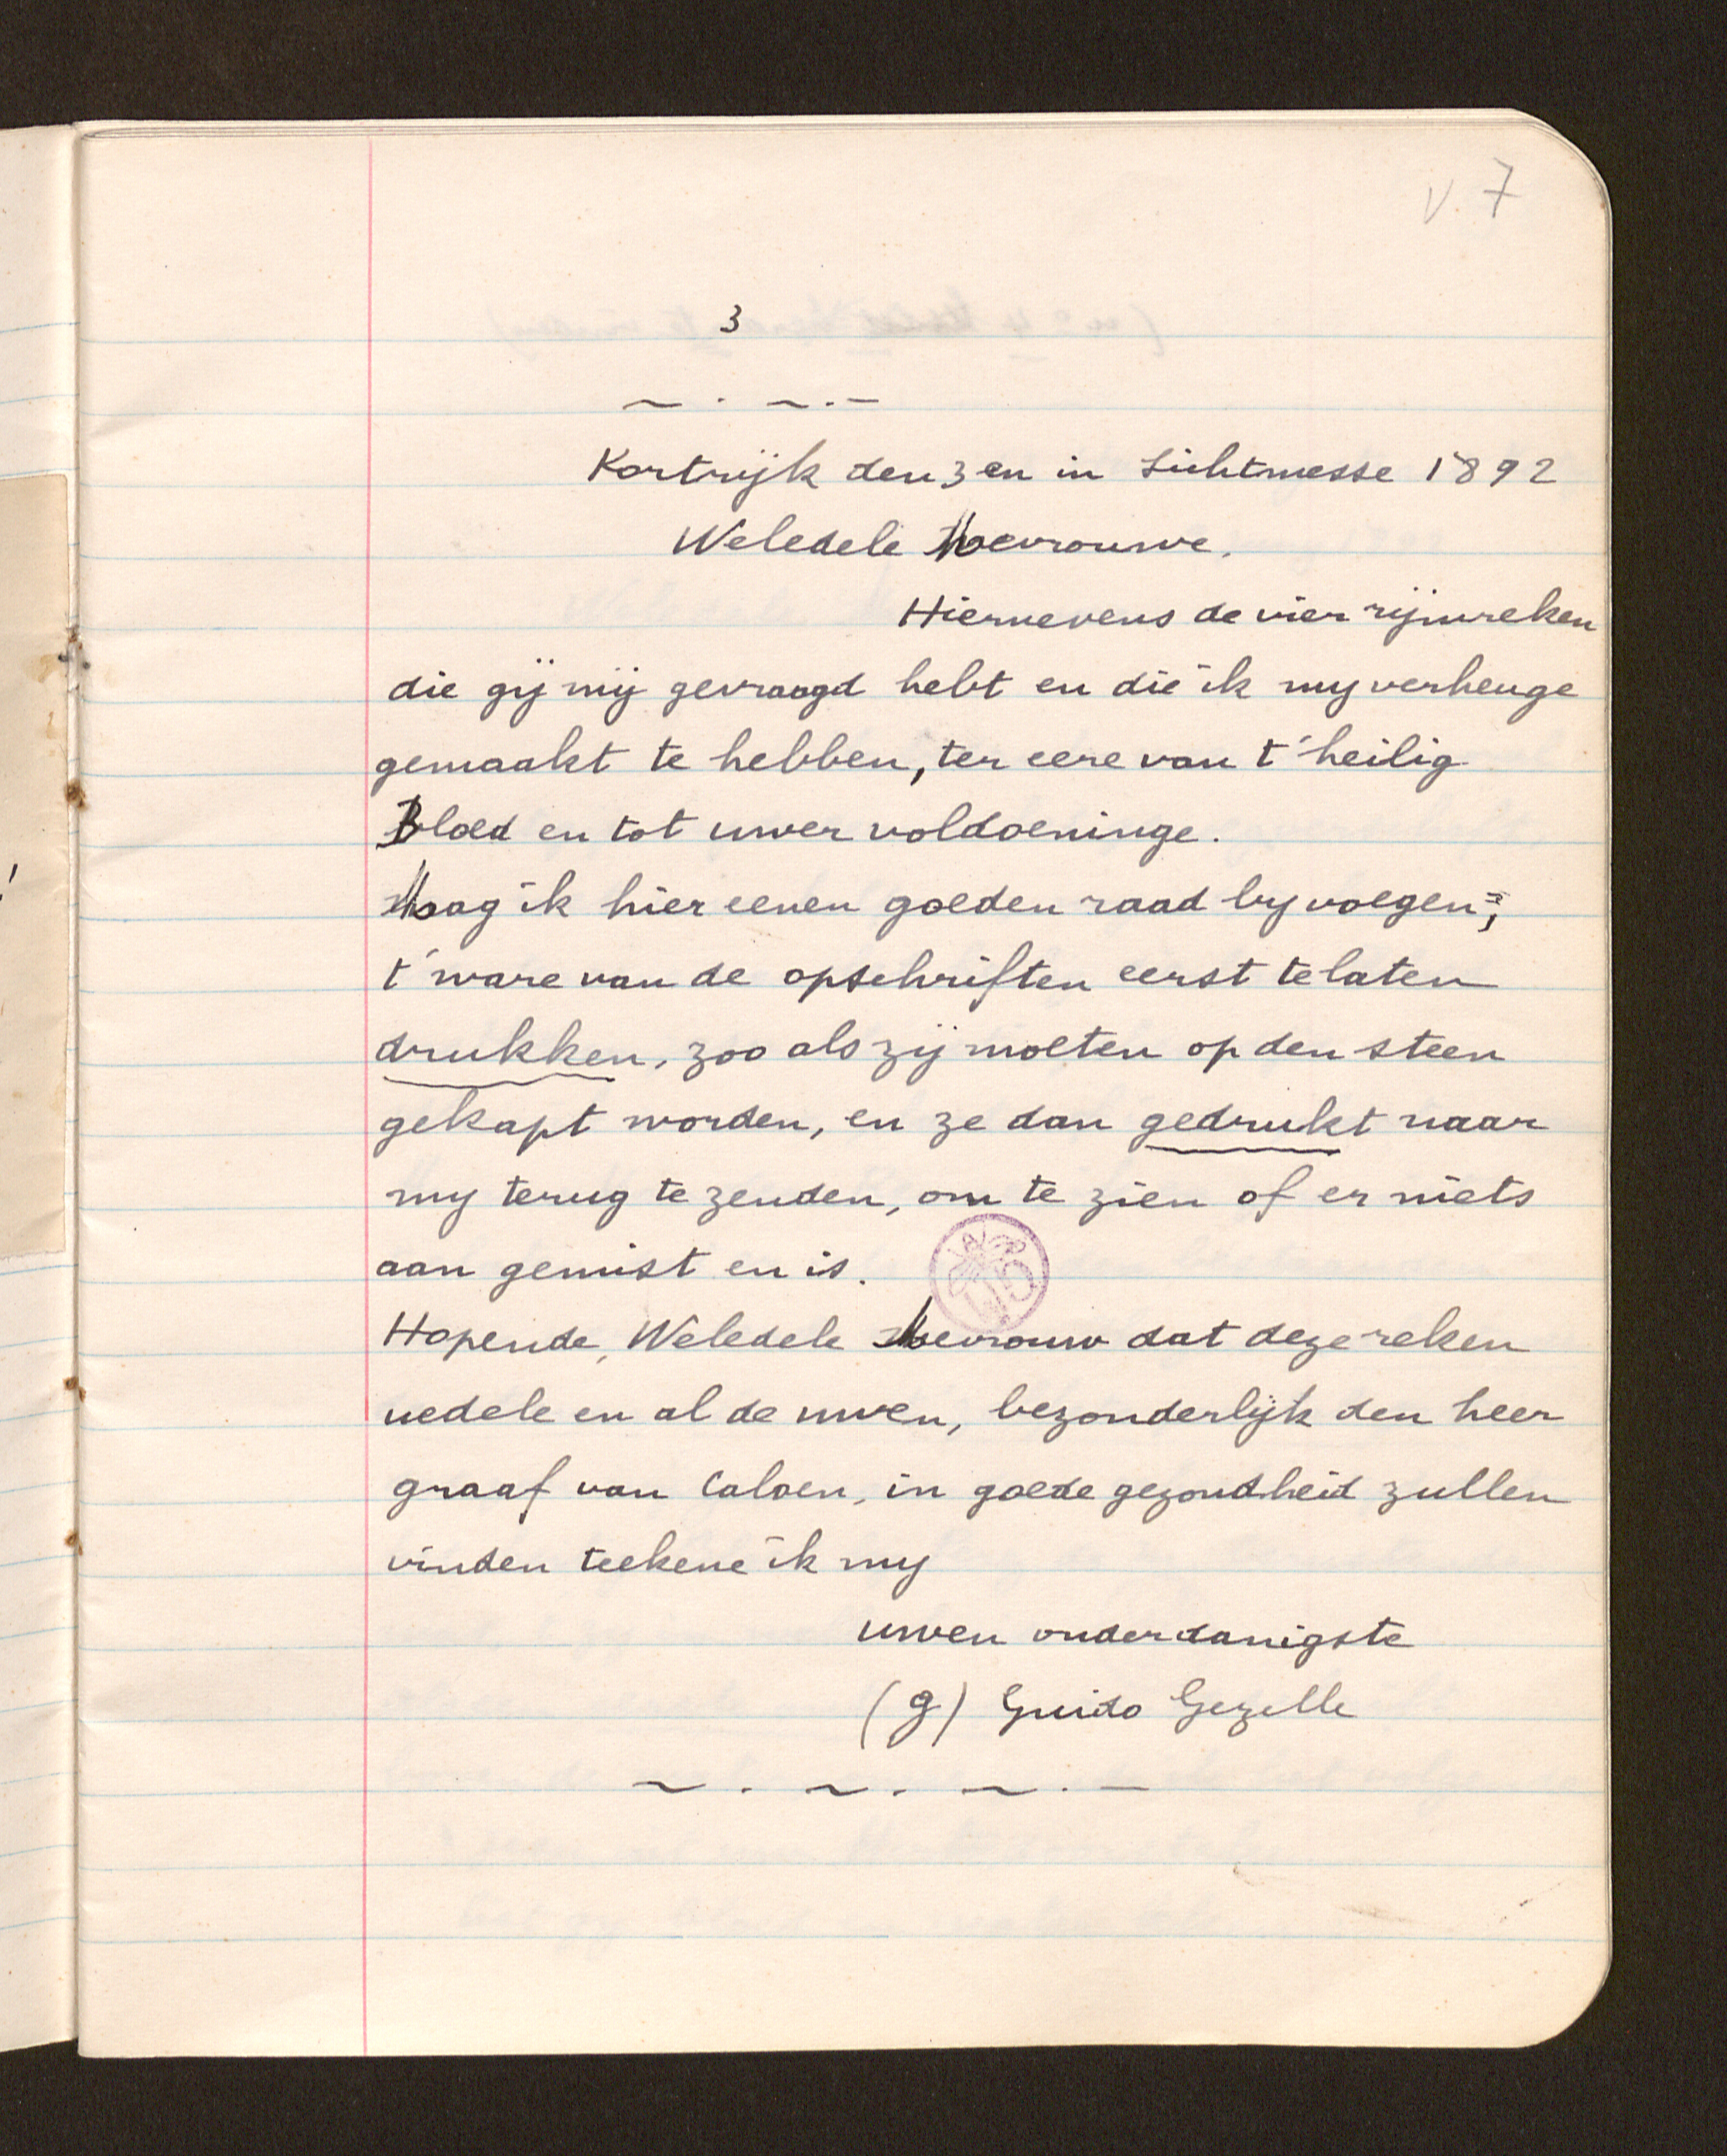 V. 7
3
Kortrijk den 3 en in Lichtmesse 1892
Weledele Mevrouwe.
Hiernevens de vier rijmreken
die gij mij gevraagd hebt en die ik my verheuge
gemaakt te hebben, ter eere van t' heilig
Bloed en tot uwer voldoeninge.
Mag ik hier eenen goeden raad by voegen;
t' ware van de opschriften eerst te laten
drukken, zoo als zij moeten op den steen
gekapt worden, en ze dan gedrukt naar
my terug te zenden, om te zien of er niets
aan gemist en is.
Hopende, Weledele Mevrouw dat deze reken
uedele en al de uwen, bezonderlijk den heer
graaf van Caloen, in goede gezondheid zullen
vinden teekene ik my
uwen onderdanigste
(g) Guido Gezelle